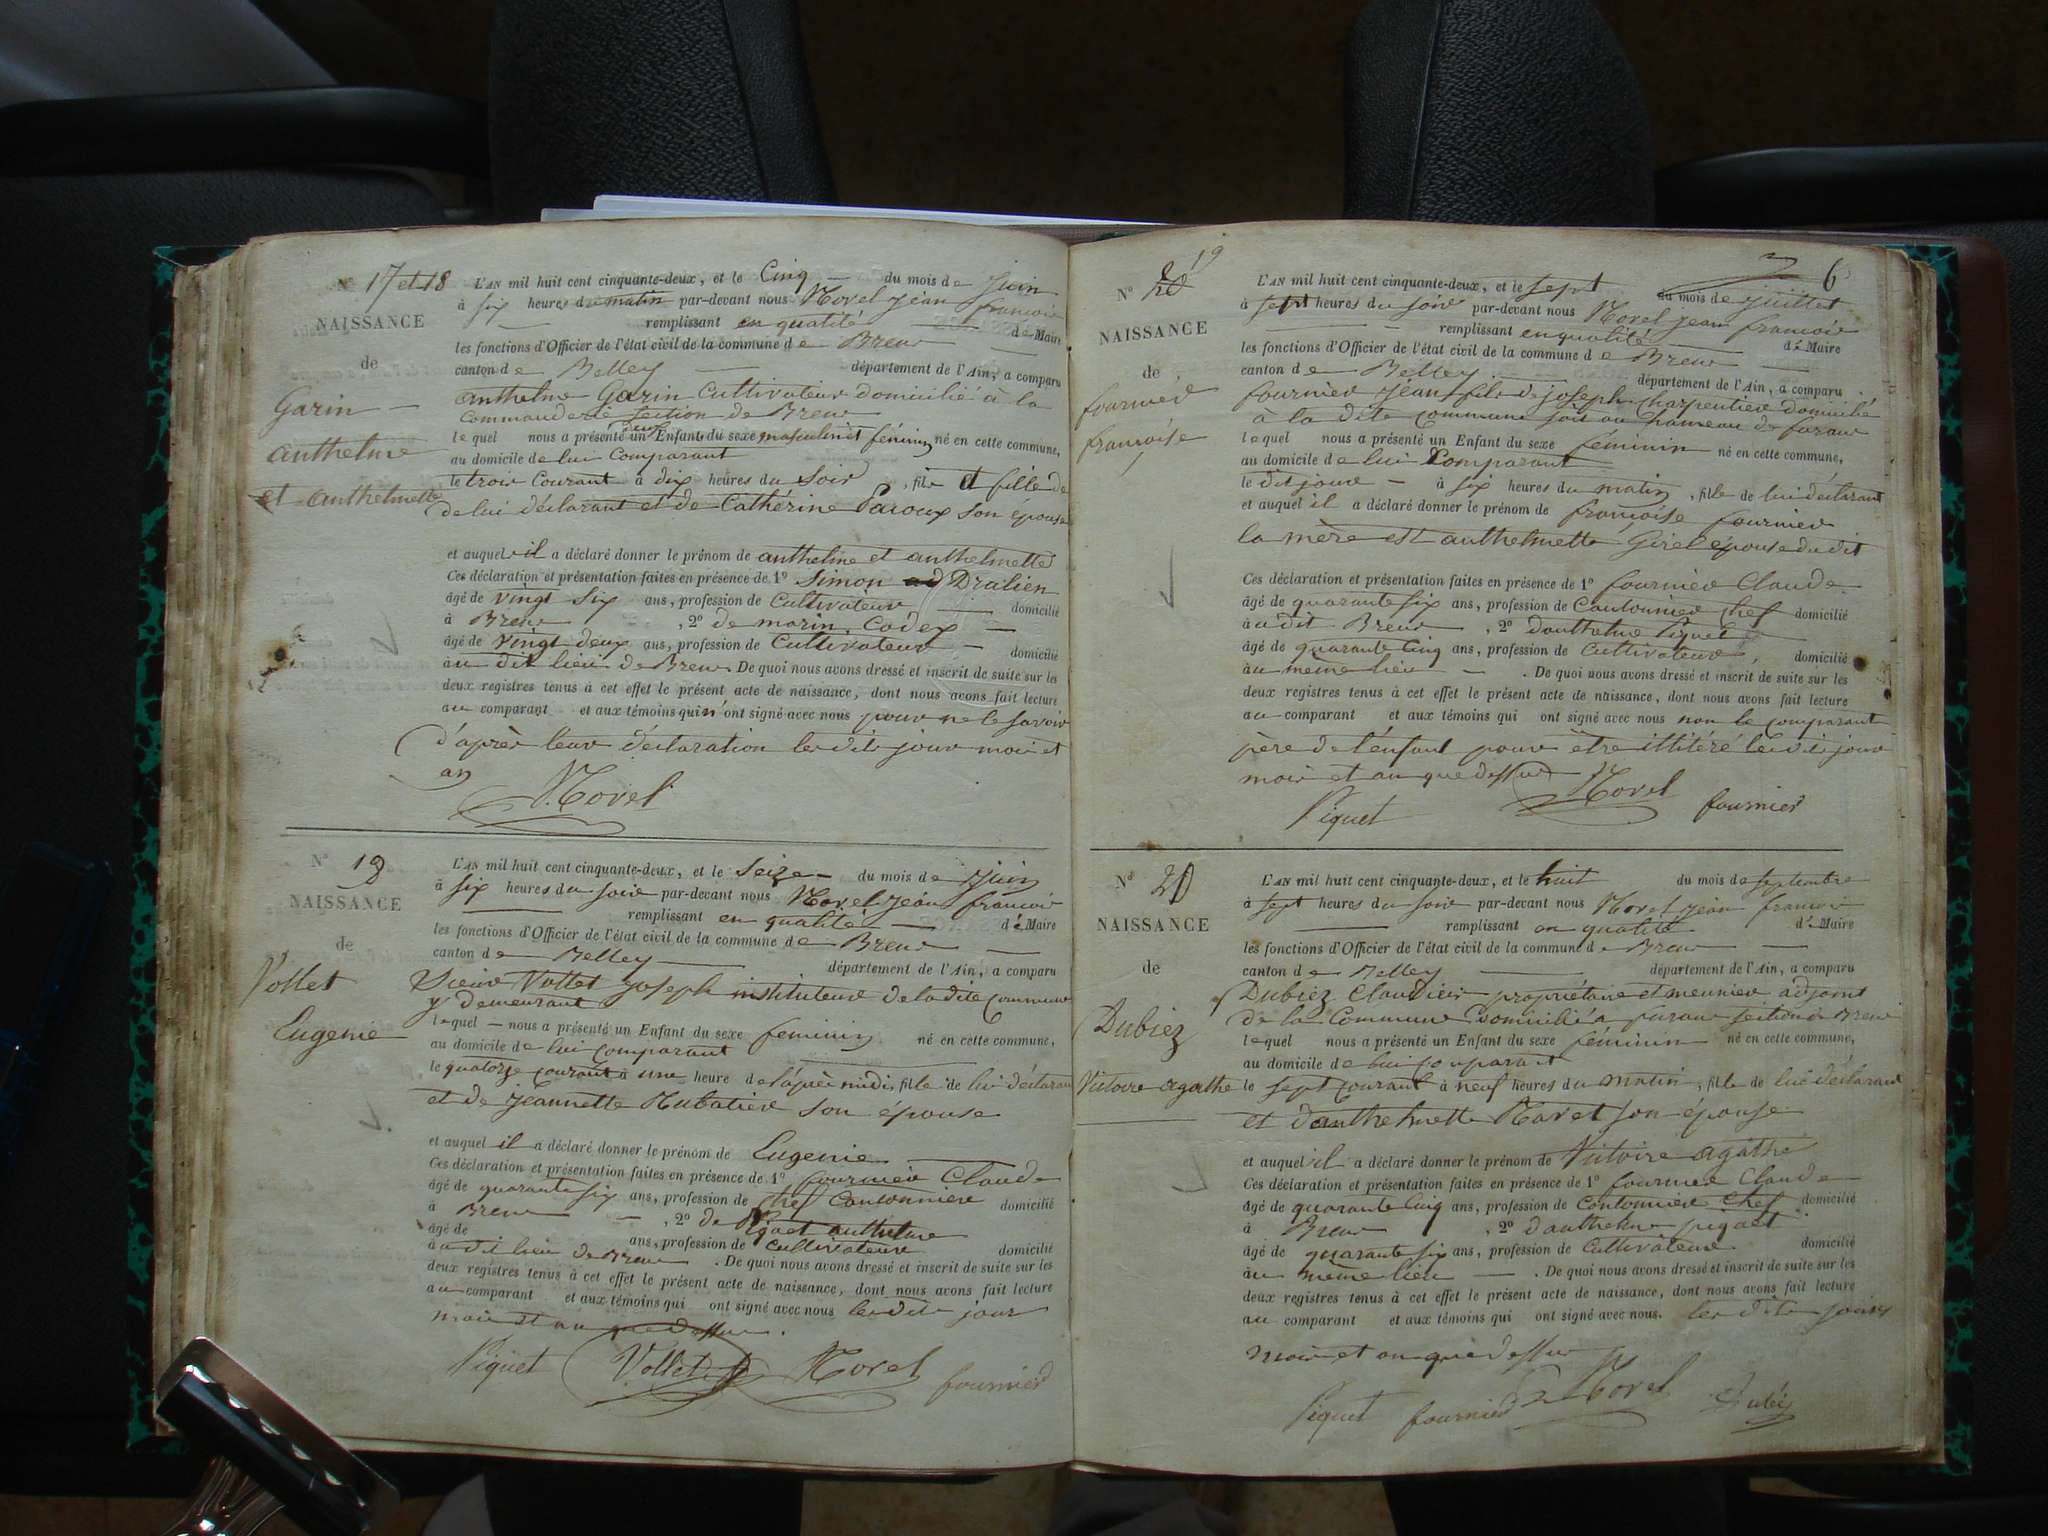 N° 17 et 18
NAISSANCE
de
Garin
anthelme
et anthelmette
L'AN mil huit cent cinquante-deux, et le Cinq du mois de Juin
à six heures du matin par-devant nous Morel jean francois
remplissant en qualité de Maire
les fonctions d'Officier de l'état civil de la commune de Brens
canton de Belley département de l'Ain, a comparu
anthelme Garin Cultivateur domicilié à la
Commanderie section de Brens
lequel nous a présenté deux Enfant du sexe masculin et féminin né en cette commune,
au domicile de lui Comparant
le trois Courant à dix heures du Soir, fils et fille de
de lui déclarant et de Cathérine Paroux son epouse
et auquel il a déclaré donner le prénom de anthelme et anthelmette
Ces déclaration et présentation faites en présence de 1° Simon Dralien
âgé de vingt six ans, profession de Cultivateur domicilié
à Brens, 2° de marin Codex
âgé de vingt deux ans, profession de Cultivateur domicilié
au dit lieu de Brens. De quoi nous avons dressé et inscrit de suite sur les
deux registres tenus à cet effet le présent acte de naissance, dont nous avons fait lecture
au comparant et aux témoins qui n'ont signé avec nous pour ne le savoir
d'après leur déclaration les dits jour mois et
an
Morel
N° 18
NAISSANCE
de
Vollet
Eugenie
L'AN mil huit cent cinquante-deux, et le Seize du mois de Juin
à six heures du soir par-devant nous Morel jean francois
remplissant en qualité de Maire
les fonctions d'Officier de l'état civil de la commune de Brens
canton de Belley département de l'Ain, a comparu
Sieur Vollet joseph instituteur de la dite commune
y demeurant
lequel nous a présenté un Enfant du sexe feminin né en cette commune,
au domicile de lui comparant
le quatorze courant à une heure de l'après midi, fille de lui déclarant
et de jeannette Mubatier son épouse
et auquel il a déclaré donner le prénom de Eugenie
Ces déclaration et présentation faites en présence de 1° fournier Claude
âgé de quarante six ans, profession de chef Cantonnier
à Brens, 2° de Piquet anthelme domicilié
âgé de ans, profession de Cultivateur
au dit lieu de Brens domicilié
. De quoi nous avons dressé et inscrit de suite sur les
deux registres tenus à cet effet le présent acte de naissance, dont nous avons fait lecture
au comparant et aux témoins qui ont signé avec nous les dits jour
mois et an que dessus.
Piquet Vollet Morel fournier
19
6
N° 20
NAISSANCE
de
fournier
françoise
L'AN mil huit cent cinquante-deux, et le sept du mois de juillet
à sept heures du soir par-devant nous Morel jean francois
remplissant en qualité de Maire
les fonctions d'Officier de l'état civil de la commune de Brens
canton de Belley département de l'Ain, a comparu
fournier jean fils de joseph charpentier domicilié
à la dite commune soit au hameau de
lequel nous a présenté un Enfant du sexe féminin né en cette commune,
au domicile de lui Comparant
le dit jour à six heures du matin, fille de lui déclarant
et auquel il a déclaré donner le prénom de françoise fournier
la mère est anthelmette Girel épouse du dit
Ces déclaration et présentation faites en présence de 1° fournier Claude
âgé de quarante six ans, profession de Cantonnier chef domicilié
au dit Brens, 2° danthelme Piquet
âgé de quarante Cinq ans, profession de Cultivateur, domicilié
au même lieu. De quoi nous avons dressé et inscrit de suite sur les
deux registres tenus à cet effet le présent acte de naissance, dont nous avons fait lecture
au comparant et aux témoins qui ont signé avec nous non le comparant
père de l'enfant pour être illitéré les dits jour
mois et an que dessus
Piquet Morel fournier
N° 20
NAISSANCE
de
Dubiez
Victoire agathe
L'AN mil huit cent cinquante-deux, et le huit du mois de septembre
à sept heures du soir par-devant nous Morel jean francois
remplissant en qualité de Maire
les fonctions d'Officier de l'état civil de la commune de Brens
canton de Belley département de l'Ain, a comparu
Dubiez Claudien propriétaire et meunier adjoint
de la Commune Domicilié a section Brens
lequel nous a présenté un Enfant du sexe féminin né en cette commune,
au domicile de lui comparant
le sept courant à neuf heures du matin, fille de lui déclarant
et danthelmette Moret son épouse
et auquel il a déclaré donner le prénom de Victoire agathe
Ces déclaration et présentation faites en présence de 1° fournier Claude
âgé de quarante cinq ans, profession de Contonnier chef domicilié
à Brens, 2° danthelme piquet
âgé de quarante six ans, profession de Cultivateur domicilié
au même lieu. De quoi nous avons dressé et inscrit de suite sur les
deux registres tenus à cet effet le présent acte de naissance, dont nous avons fait lecture
au comparant et aux témoins qui ont signé avec nous. les dits jours
mois et an que dessus
Piquet fournier Morel Dubiez